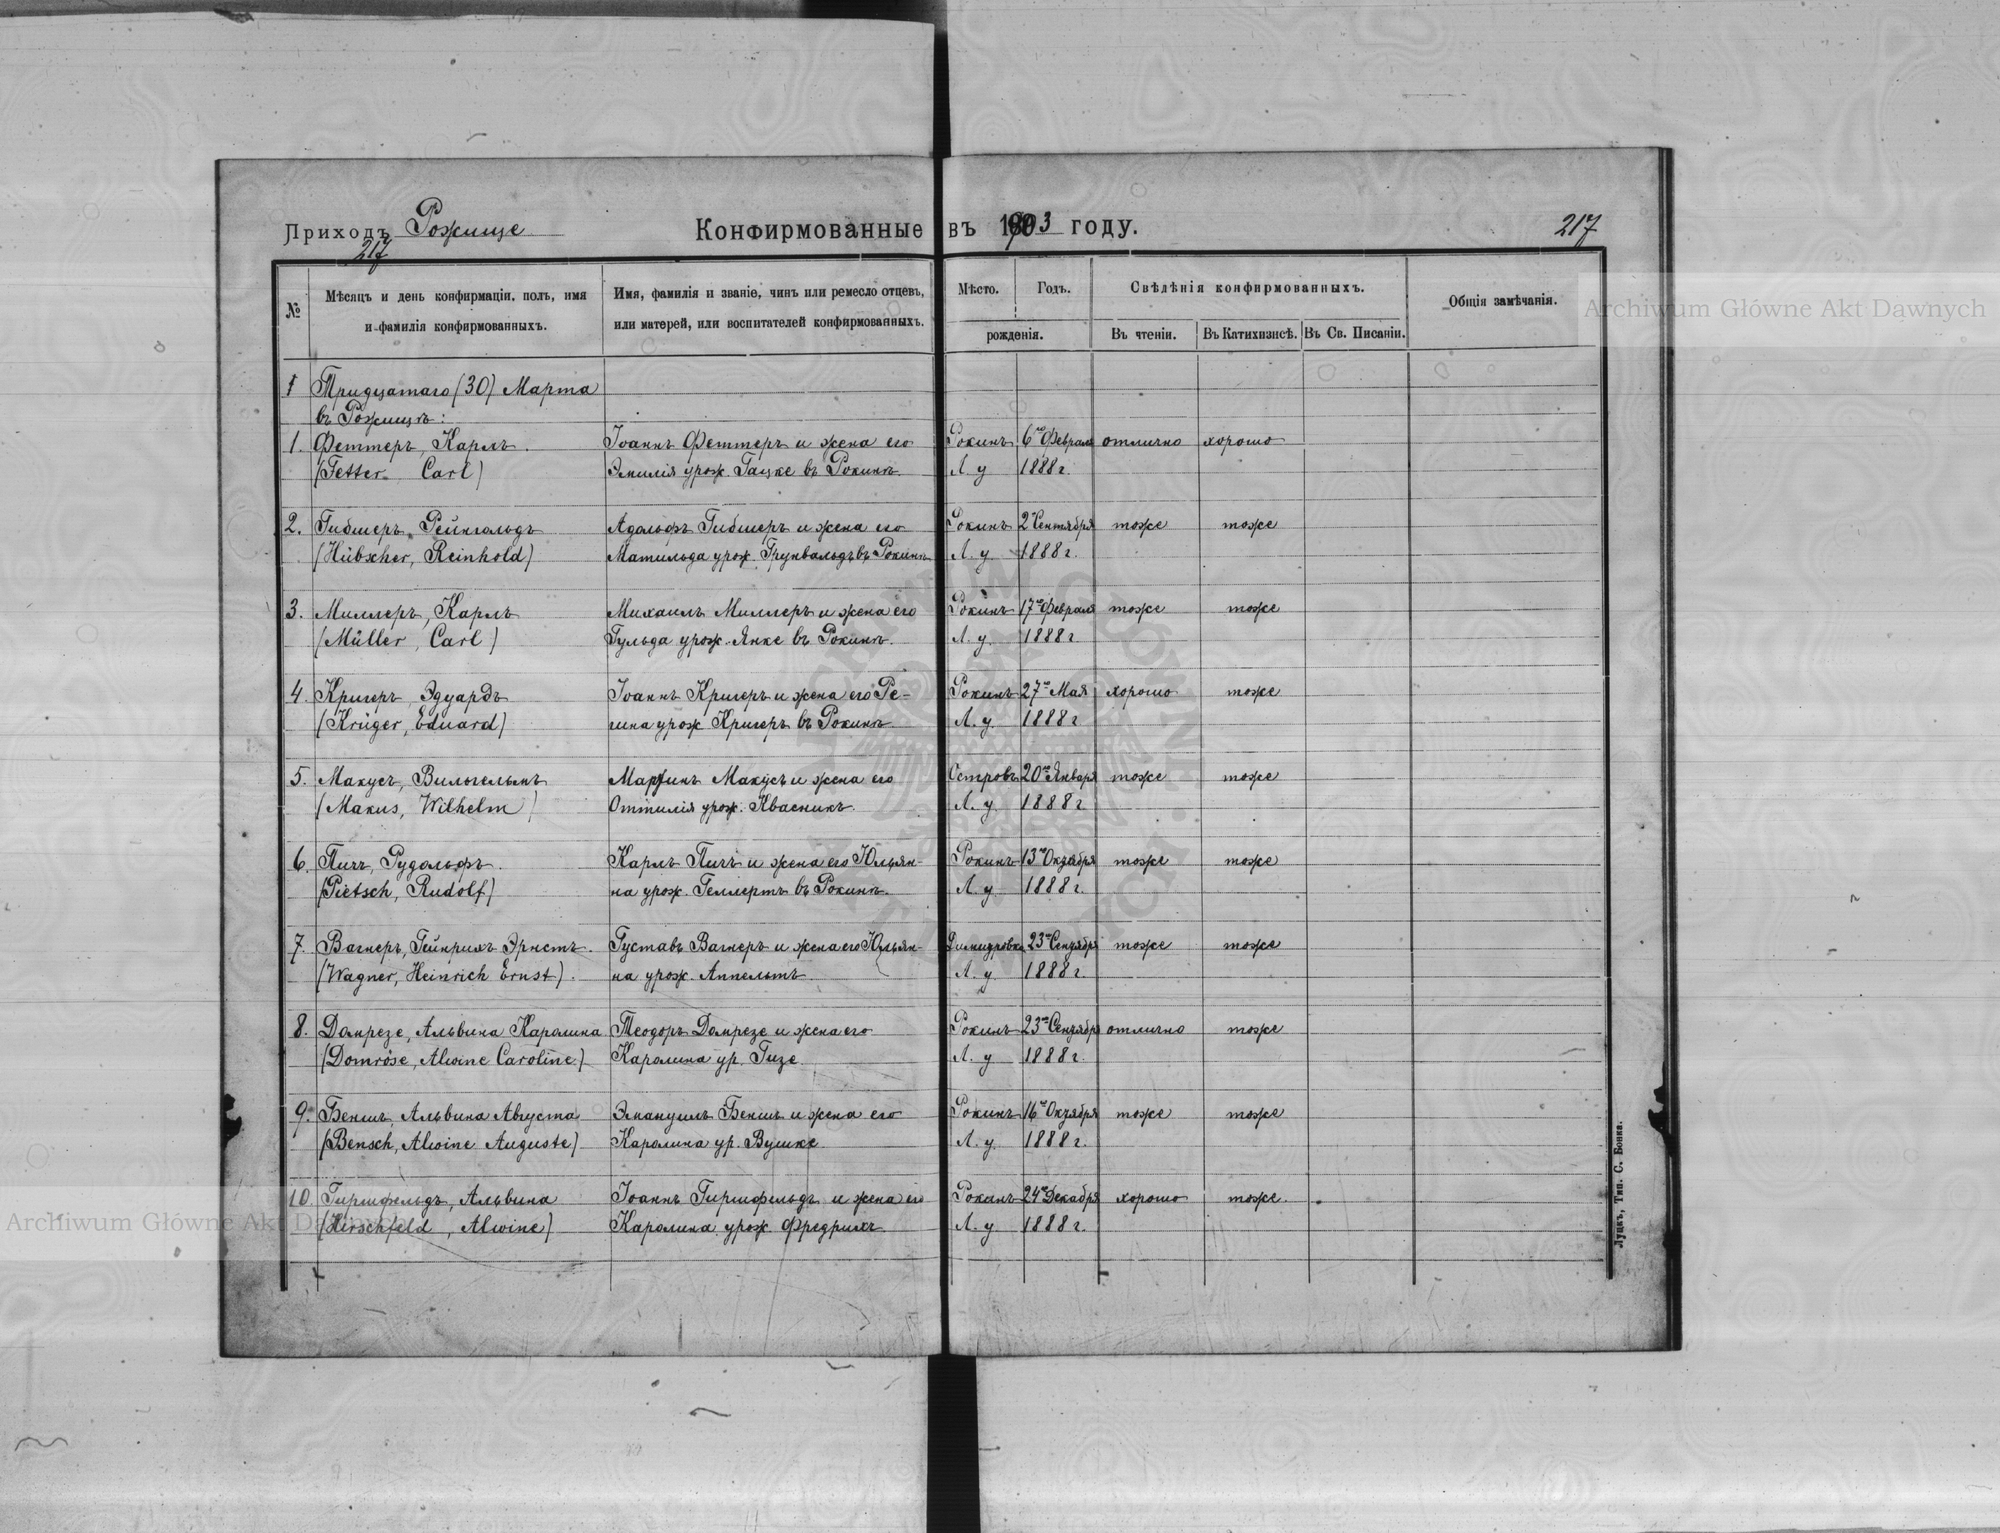 Приходъ Рожище
217
Конфирмованные въ 1903 году.
217
№
Мѣсяцъ и день конфирмаціи, полъ, имя
и фамилія конфирмованныхъ.
Имя, фамилія и званіе, чинъ или ремесло отцевъ,
или матерей, или воспитателей конфирмованныхъ.
Мѣсто. Годъ.
рожденія.
Свѣдѣнія конфирмованныхъ.
Въ чтеніи. Въ Катихизисѣ. Въ Св. Писаніи.
Общія замѣчанія.
Archiwum Główne Akt Dawnych
1 Тридцатаго (30) Марта
въ Рожищѣ:
1. Феттеръ, Карлъ. Іоаннъ Феттеръ и жена его Рокинъ 6го Февраля отлично хорошо
(Fetter Carl) Эмилія урож. Гацке въ Рокинѣ. Л. у 1888 г.
2. Гибшеръ, Рейнгольдъ Адольфъ Гибшеръ и жена его Рокинъ 2го Сентября тоже тоже
(Hübscher, Reinhold) Матильда урож. Грунвальдъ въ Рокинѣ Л. у 1888 г.
3. Миллеръ, Карлъ Михаилъ Миллеръ и жена его Рокинъ 17го Февраля тоже тоже
(Müller, Carl) Гульда урож. Янке въ Рокинѣ. Л. у. 1888 г
4. Кригеръ, Эдуардъ Іоаннъ Кригеръ и жена его Ре- Рокинъ 27го Мая хорошо тоже
(Krüger, Eduard) гина урож Кригеръ въ Рокинѣ. Л. у. 1888 г
5. Макусъ, Вильгельмъ Мартинъ Макусъ и жена его Островъ 20го Января тоже тоже
(Makus, Wilhelm) Оттилія урож. Квасникъ. Л. у. 1888 г
6. Пичъ, Рудольфъ. Карлъ Пичъ и жена его Юльян- Рокинъ 13го Октября тоже тоже
(Pietsch, Rudolf) на урож. Геллертъ въ Рокинѣ. Л. у. 1888 г.
7. Вагнеръ, Гейнрихъ Эрнстъ. Густавъ Вагнеръ и жена его Юльян- 23го Сентября тоже тоже
(Wagner, Heinrich Ernst). на урож. Аппельтъ. Л. у. 1888 г.
8. Домрезе, Альвина Каролина Теодоръ Домрезе и жена его Рокинъ 23го Сентября отлично тоже
(Domröse, Alwine Caroline) Каролина ур. Гизе Л. у 1888 г.
9. Беншъ, Альвина Августа Эмануилъ Беншъ и жена его Рокинъ 16го Октября тоже тоже
(Bensch, Alwine Auguste) Каролина ур. Вушке Л. у. 1888 г.
10. Гиршфельдъ, Альвина Іоаннъ Гиршфельдъ и жена его Рокинъ 24го Декабря хорошо тоже.
(Hirschfeld, Alwine) Каролина урож. Фредрихъ Л. у 1888 г.
Archiwum Główne Akt Dawnych
Луцкъ, Тип. С. Бонка.